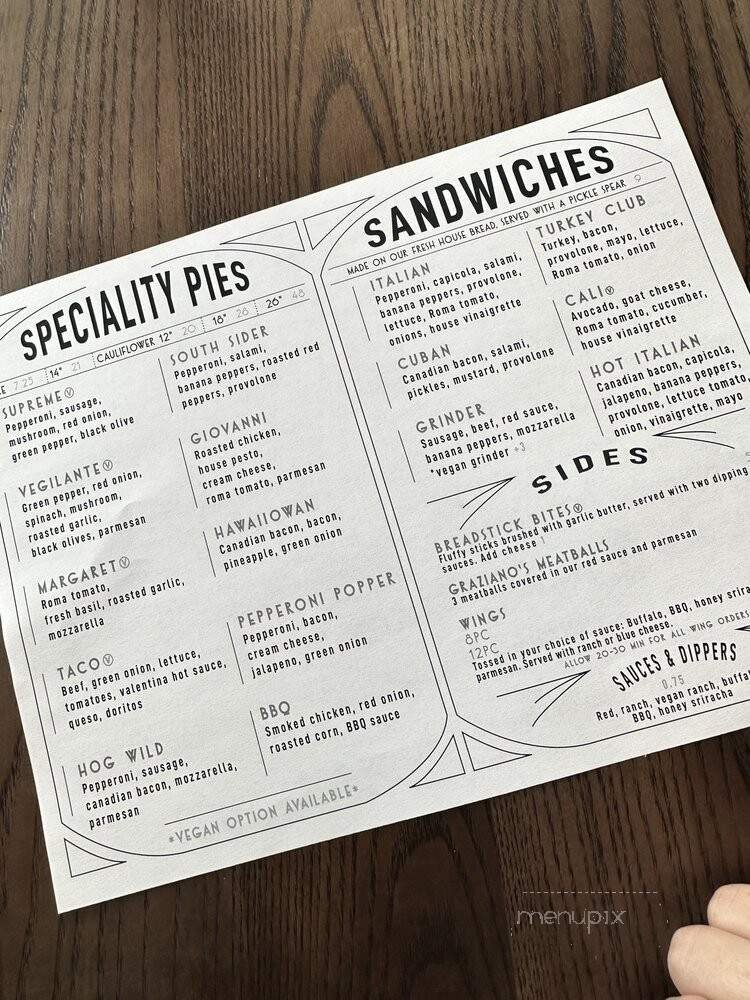 SPECIALITY PIES
7.25 14" 21 CAULIFLOWER 12" 20 18" 28 26" 48
SUPREMEⓋ
Pepperoni, sausage,
mushroom, red onion,
green pepper, black olive
VEGILANTEⓋ
Green pepper, red onion,
spinach, mushroom,
roasted garlic,
black olives, parmesan
MARGARETⓋ
Roma tomato,
fresh basil, roasted garlic,
mozzarella
TACOⓋ
Beef, green onion, lettuce,
tomatoes, valentina hot sauce,
queso, doritos
HOG WILD
Pepperoni, sausage,
canadian bacon, mozzarella,
parmesan
SOUTH SIDER
Pepperoni, salami,
banana peppers, roasted red
peppers, provolone
GIOVANNI
Roasted chicken,
house pesto,
cream cheese,
roma tomato, parmesan
HAWAIIOWAN
Canadian bacon, bacon,
pineapple, green onion
PEPPERONI POPPER
Pepperoni, bacon,
cream cheese,
jalapeno, green onion
BBQ
Smoked chicken, red onion,
roasted corn, BBQ sauce
*VEGAN OPTION AVAILABLE*
SANDWICHES
MADE ON OUR FRESH HOUSE BREAD, SERVED WITH A PICKLE SPEAR 9
ITALIAN
Pepperoni, capicola, salami,
banana peppers, provolone,
lettuce, Roma tomato,
onions, house vinaigrette
CUBAN
Canadian bacon, salami,
pickles, mustard, provolone
GRINDER
Sausage, beef, red sauce,
banana peppers, mozzarella
*vegan grinder +3
TURKEY CLUB
Turkey, bacon,
provolone, mayo, lettuce,
Roma tomato, onion
CALIⓋ
Avocado, goat cheese,
Roma tomato, cucumber,
house vinaigrette
HOT ITALIAN
Canadian bacon, capicola,
jalapeno, banana peppers,
provolone, lettuce tomato,
onion, vinaigrette, mayo
SIDES
BREADSTICK BITESⓋ
Fluffy sticks brushed with garlic butter, served with two dipping
sauces. Add cheese
GRAZIANO'S MEATBALLS
3 meatballs covered in our red sauce and parmesan
WINGS
8PC
12PC
Tossed in your choice of sauce: Buffalo, BBQ, honey
parmesan. Served with ranch or blue cheese.
ALLOW 20-30 MIN FOR ALL WING ORDERS
SAUCES & DIPPERS
0.75
Red, ranch, vegan ranch,
BBQ, honey sriracha
menupix